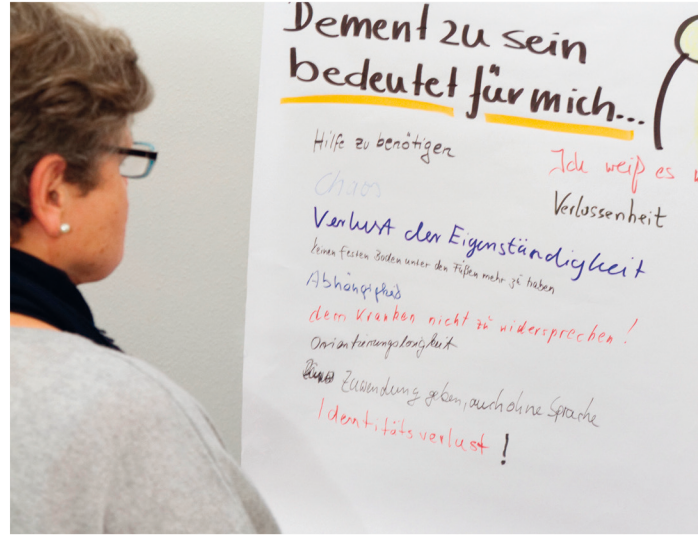 Dement zu sein
bedeutet für mich...
Hilfe zu benötigen
Ich weiß es
Chaos
Verlassenheit
Verlust der Eigenständigkeit
keinen festen Boden unter den Füßen mehr zu haben
Abhängigkeit
dem Kranken nicht zu widersprechen!
Orientierungslosigkeit
Zuwendung geben, auch ohne Sprache
Identitätsverlust!